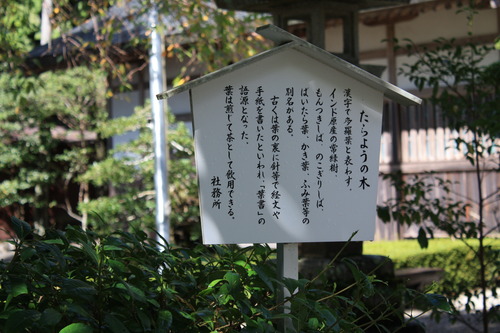 たらようの木
漢字で多羅葉と表わす。
インド原産の常緑樹
もんつきしば、のこぎりしば、
ばいたら葉、かき葉、ふみ葉等の
別名がある。
古くは葉の裏に針等で経文や
手紙を書いたといわれ、「葉書」の
語源となった。
葉は煎じて茶として飲用できる。
社務所